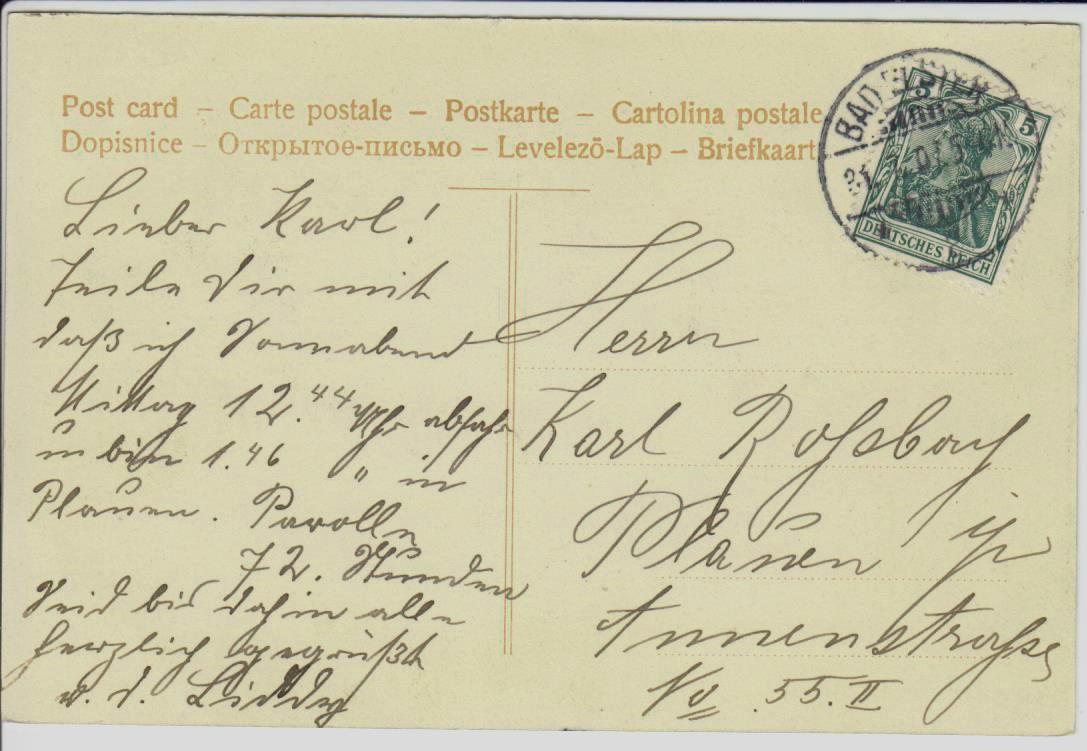 Post card – Carte postale – Postkarte – Cartolina postale
Dopisnice – Открытоѳ-письмо – Levelező-Lap – Briefkaart
BAD ELSTER
5 5
DEUTSCHES REICH
Lieber Karl!
Teile Dir mit
daß ich Sonnabend
Mittag 12.44 Uhr abfahre
u bin 1.46 " in
Plauen. Parolle
72. Stunden
Seid bis dahin alle
herzlich gegrüßt
v. d.
Herrn
Karl Roßbach
Plauen i/v
Annenstraße
No 55. II